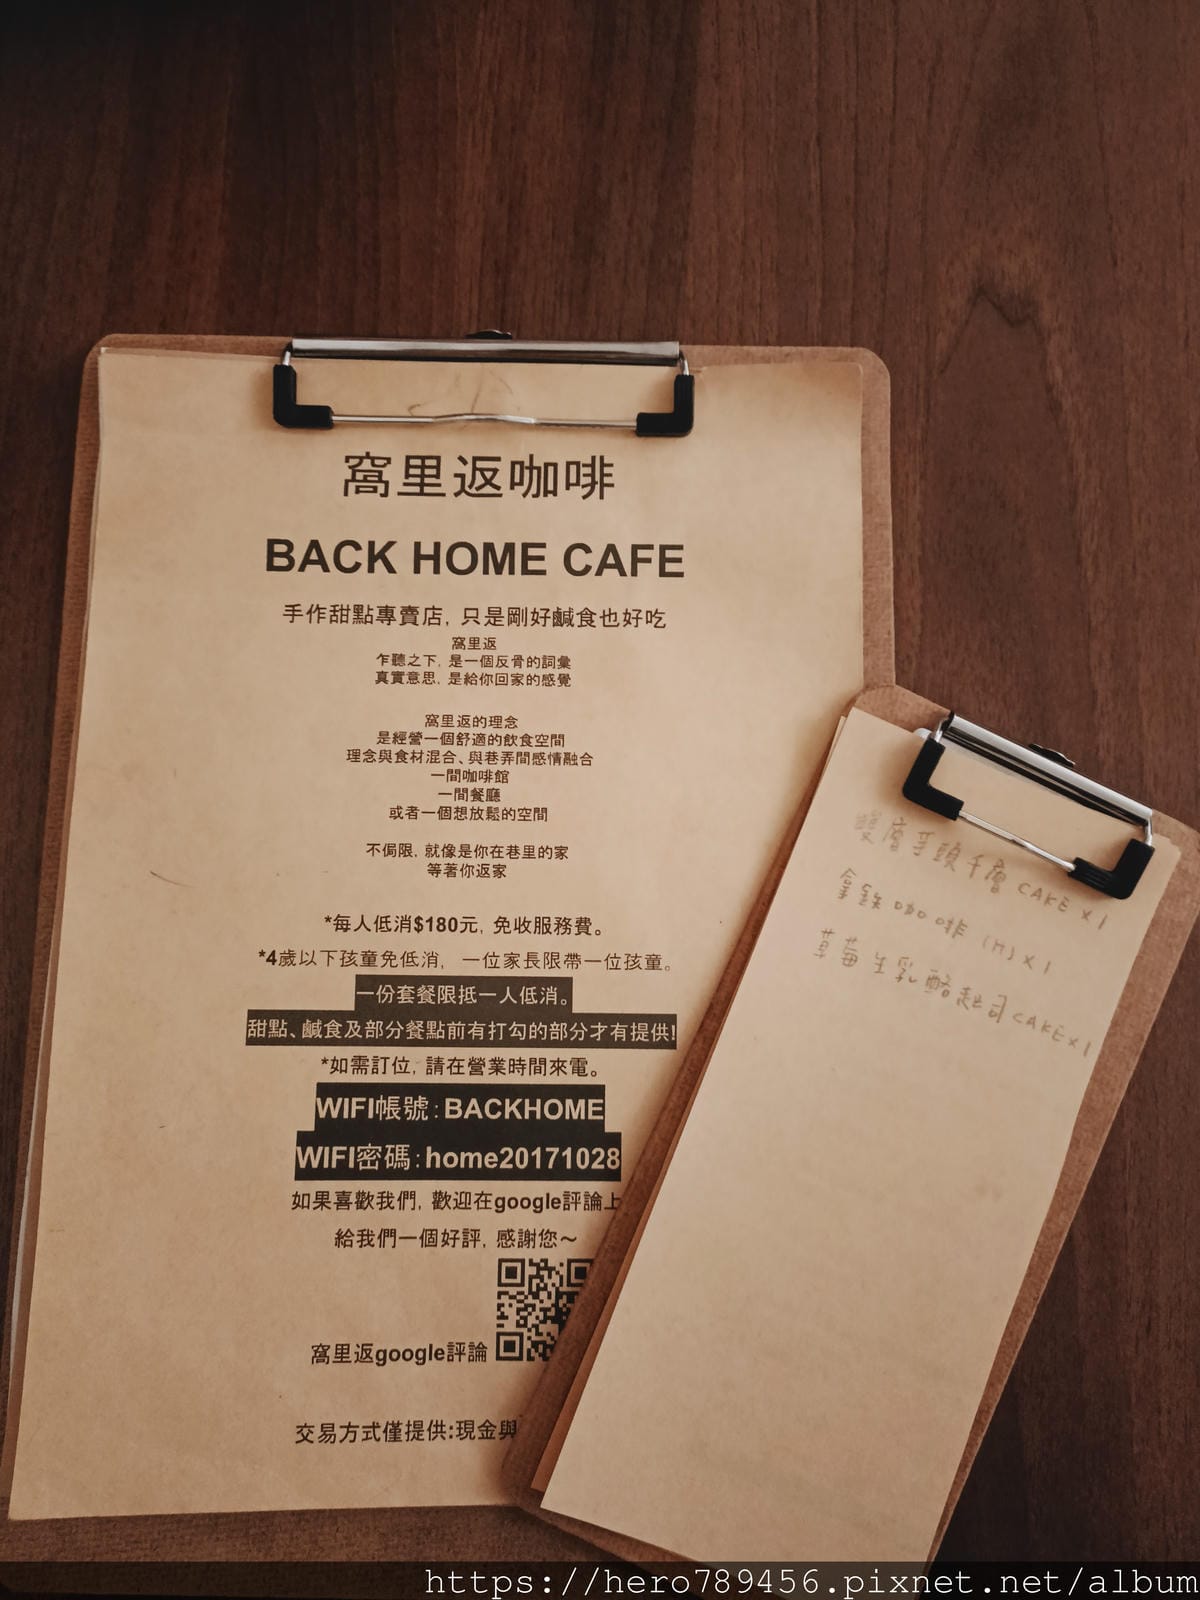 窩里返咖啡
BACK HOME CAFE
手作甜點專賣店, 只是剛好鹹食也好吃
窩里返
乍聽之下, 是一個反骨的詞彙
真實意思, 是給你回家的感覺
窩里返的理念
是經營一個舒適的飲食空間
理念與食材混合、與巷弄間感情融合
一間咖啡館
一間餐廳
或者一個想放鬆的空間
不侷限, 就像是你在巷里的家
等著你返家
*每人低消$180元, 免收服務費。
*4歲以下孩童免低消, 一位家長限帶一位孩童。
一份套餐限抵一人低消。
甜點、鹹食及部分餐點前有打勾的部分才有提供!
*如需訂位, 請在營業時間來電。
WIFI帳號:BACKHOME
WIFI密碼:home20171028
如果喜歡我們, 歡迎在google評論上
給我們一個好評, 感謝您~
窩里返google評論
交易方式僅提供:現金與
雙層芋頭千層CAKE x1
拿鐵咖啡 (M) x1
草莓生乳酪起司CAKE x1
https://hero789456.pixnet.net/album